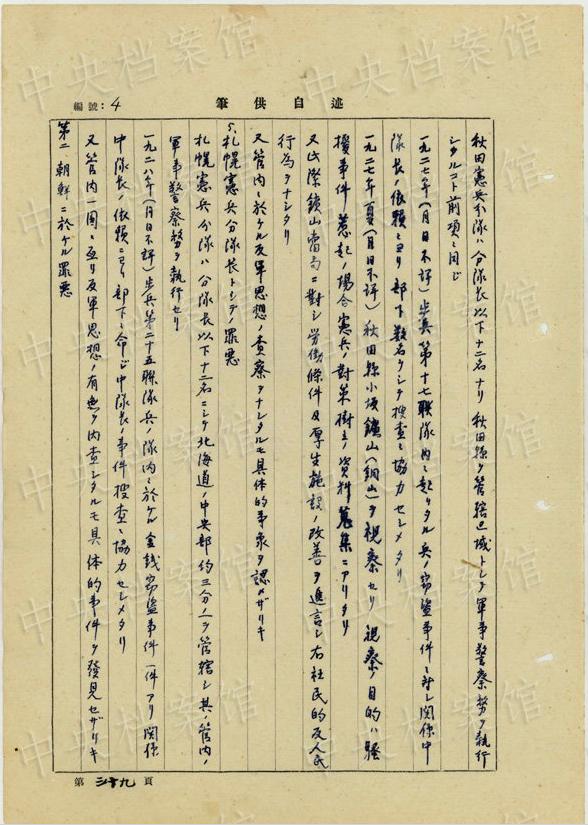 編號:4
述自供筆
秋田憲兵分隊ハ分隊長以下十二名ナリ 秋田縣ヲ管轄区域トシテ軍事警察務ヲ執行
シタルコト前項ニ同ジ
一九二七年(月日不詳)歩兵第十七聯隊内ニ起リタル兵ノ窃盗事件ニ対シ関係中
隊長ノ依頼ニヨリ部下数名ヲシテ捜査ニ協力セシメタリ
一九二七年夏(月日不詳)秋田縣小坂鑛山(銅山)ヲ視察セリ 視察ノ目的ハ騒
擾事件惹起ノ場合憲兵ノ対策樹立ノ資料蒐集ニアリタリ
又此際鑛山當局ニ對シ労働條件及厚生施設ノ改善ヲ進言シ右社民的反人民
行為ヲナシタリ
又管内ニ於ケル反軍思想ノ査察ヲナシタルモ具体的事象ヲ認メザリキ
5.札幌憲兵分隊長トシテノ罪悪
札幌憲兵分隊ハ分隊長以下十二名ニシテ北海道ノ中央部約三分ノ一ヲ管轄シ其ノ管内ノ
軍事警察務ヲ執行セリ
一九二八年(月日不詳)歩兵第二十五聯隊兵ノ隊内ニ於ケル金銭窃盗事件一件アリ関係
中隊長ノ依頼ニヨリ部下ニ命ジ中隊長ノ事件捜査ニ協力セシメタリ
又管内一円ニ亘リ反軍思想ノ有無ヲ内査シタルモ具体的事件ヲ発見セザリキ
第二 朝鮮ニ於ケル罪悪
第 三十九 頁
中央档案馆